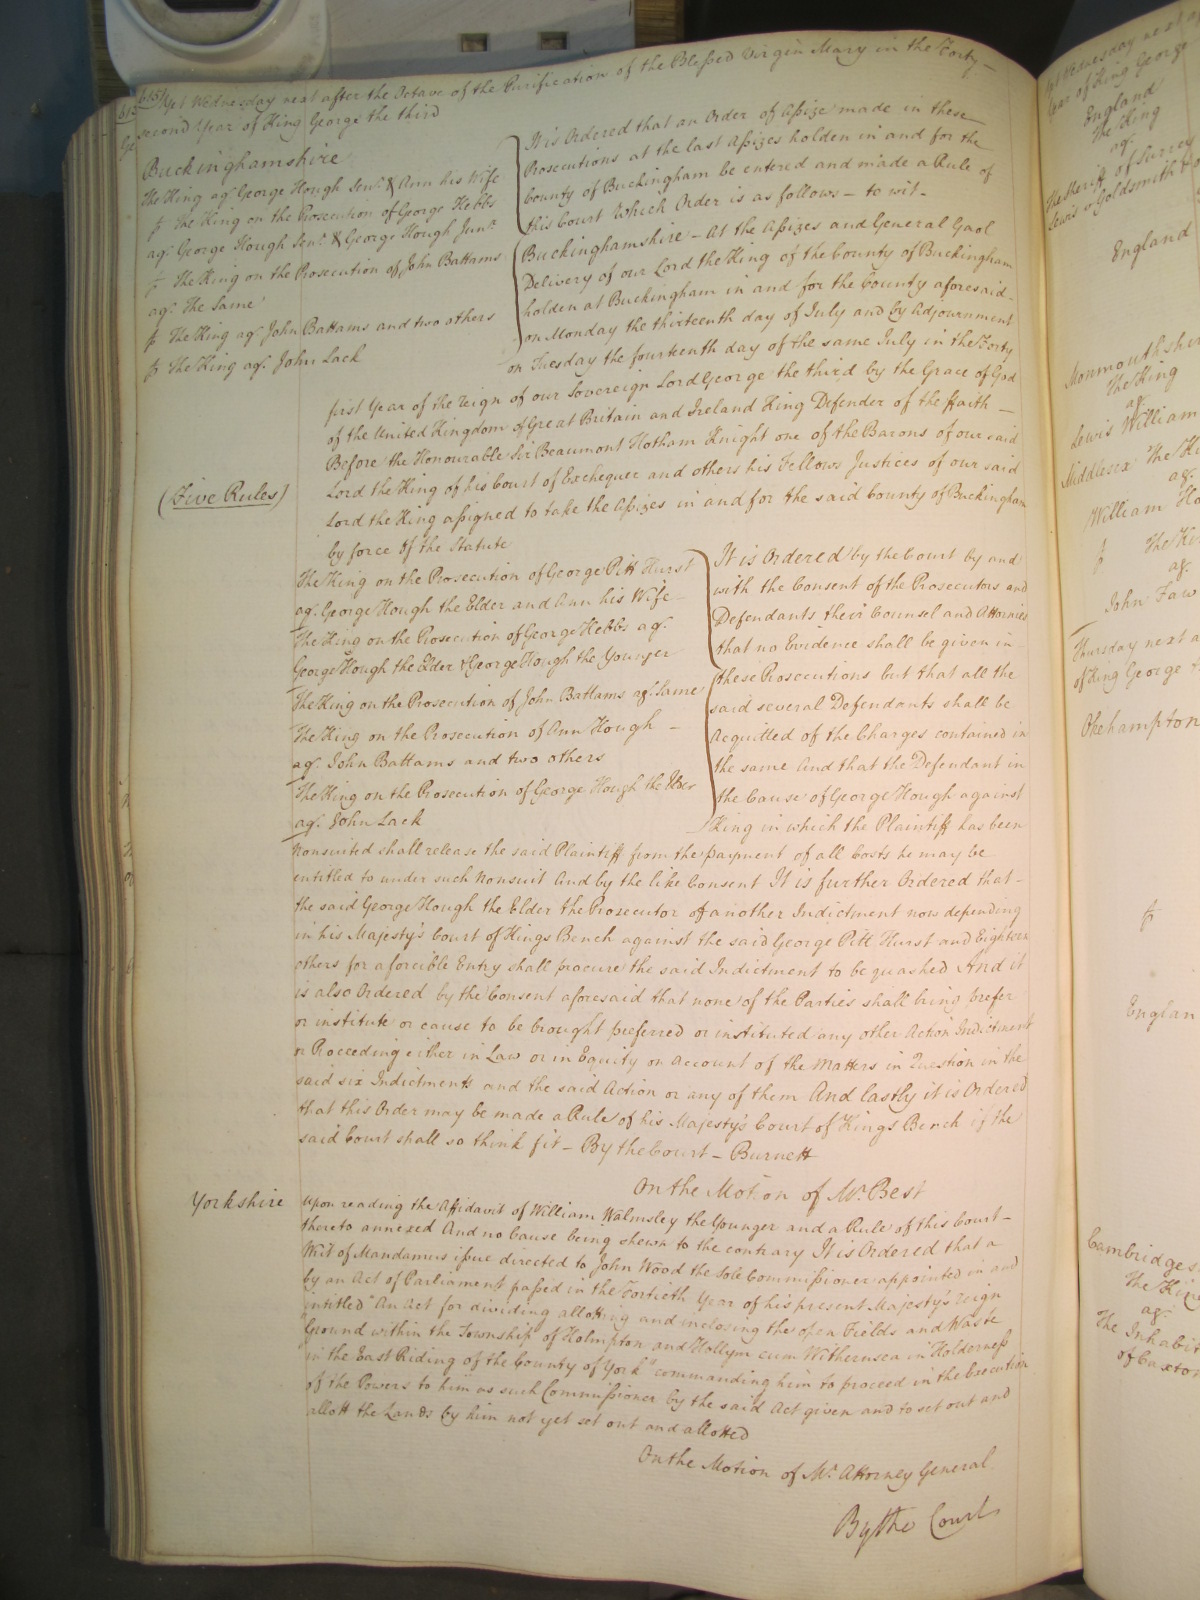 615 Yet Wednesday next after the Octave of the Purification of the Blessed Virgin Mary in the Forty-
second Year of King George the third
Buckinghamshire
The King agt George Hough Senr & Ann his Wife
The King on the Prosecution of George Hebbs
agt George Hough Senr & George Hough Junr
The King on the Prosecution of John Battams
agt The Same
The King agt John Battams and two others
The King agt John Lack
It is Ordered that an Order of Assize made in these
Prosecutions at the last Assizes holden in and for the
County of Buckingham be entered and made a Rule of
this Court Which Order is as follows - to wit -
Buckinghamshire - At the Assizes and General Gaol
Delivery of our Lord the King of the County of Buckingham
holden at Buckingham in and for the County aforesaid -
on Monday the thirteenth day of July and by Adjournment
on Tuesday the fourteenth day of the same July in the Forty
first Year of the reign of our Sovereign Lord George the third by the Grace of God
of the United Kingdom of Great Britain and Ireland King Defender of the ffaith -
Before the Honourable Sir Beaumont Hotham Knight one of the Barons of our said
Lord the King of his Court of Exchequer and others his Fellows Justices of our said
Lord the King assigned to take the Assizes in and for the said County of Buckingham
by force of the Statute
(Five Rules)
The King on the Prosecution of George Pitt Hurst
agt George Hough the Elder and Ann his Wife -
The King on the Prosecution of George Hebbs agt
George Hough the Elder & George Hough the Younger
The King on the Prosecution of John Battams agt Same
The King on the Prosecution of Ann Hough -
agt John Battams and two others
The King on the Prosecution of George Hough the Elder
agt John Lack
It is Ordered by the Court by and
with the Consent of the Prosecutors and
Defendants their Counsel and Attornies
that no Evidence shall be given in
these Prosecutions but that all the
said several Defendants shall be
Acquitted of the Charges contained in
the same And that the Defendant in
the Cause of George Hough against
King in which the Plaintiff has been
Nonsuited shall release the said Plaintiff from the payment of all Costs he may be
entitled to under such Nonsuit And by the like Consent It is further Ordered that -
the said George Hough the Elder the Prosecutor of another Indictment now depending
in his Majesty's Court of Kings Bench against the said George Pitt Hurst and Eighteen
others for a forcible Entry shall procure the said Indictment to be quashed And it
is also Ordered by the Consent aforesaid that none of the Parties shall bring prefer
or institute or cause to be brought preferred or instituted any other Action Indictment
or Proceeding either in Law or in Equity on Account of the Matters in Question in the
said six Indictments and the said Action or any of them And lastly it is Ordered
that this Order may be made a Rule of his Majesty's Court of Kings Bench if the
said Court shall so think fit - By the Court - Burnett
On the Motion of Mr. Best
Yorkshire
Upon reading the Affidavit of William Walmsley the Younger and a Rule of this Court -
thereto annexed And no Cause being shewn to the contrary It is Ordered that a
Writ of Mandamus issue directed to John Wood the Sole Commissioner appointed in and
by an Act of Parliament passed in the Fortieth Year of his present Majesty's reign
intitled "An Act for dividing allotting and inclosing the open Fields and Waste
Ground within the Township of Holmpton and Hollym cum Withernsea in Holderness
in the East Riding of the County of York" commanding him to proceed in the Execution
of the Powers to him as such Commissioner by the said Act given and to set out and
allott the Lands by him not yet set out and allotted
On the Motion of Mr. Attorney General
By the Court
Yet Wednesday next
Year of King George
England
The King
agt
The Sheriff of Surrey
Lewis Goldsmith
England
Monmouthshire
The King
agt
Lewis William
Middlesex The Ki
agt
William Ho
The Kin
agt
John Faw
Thursday next a
of King George
Okehampton
Englan
Cambridges
The King
agt
The Inhabit
of Caxton